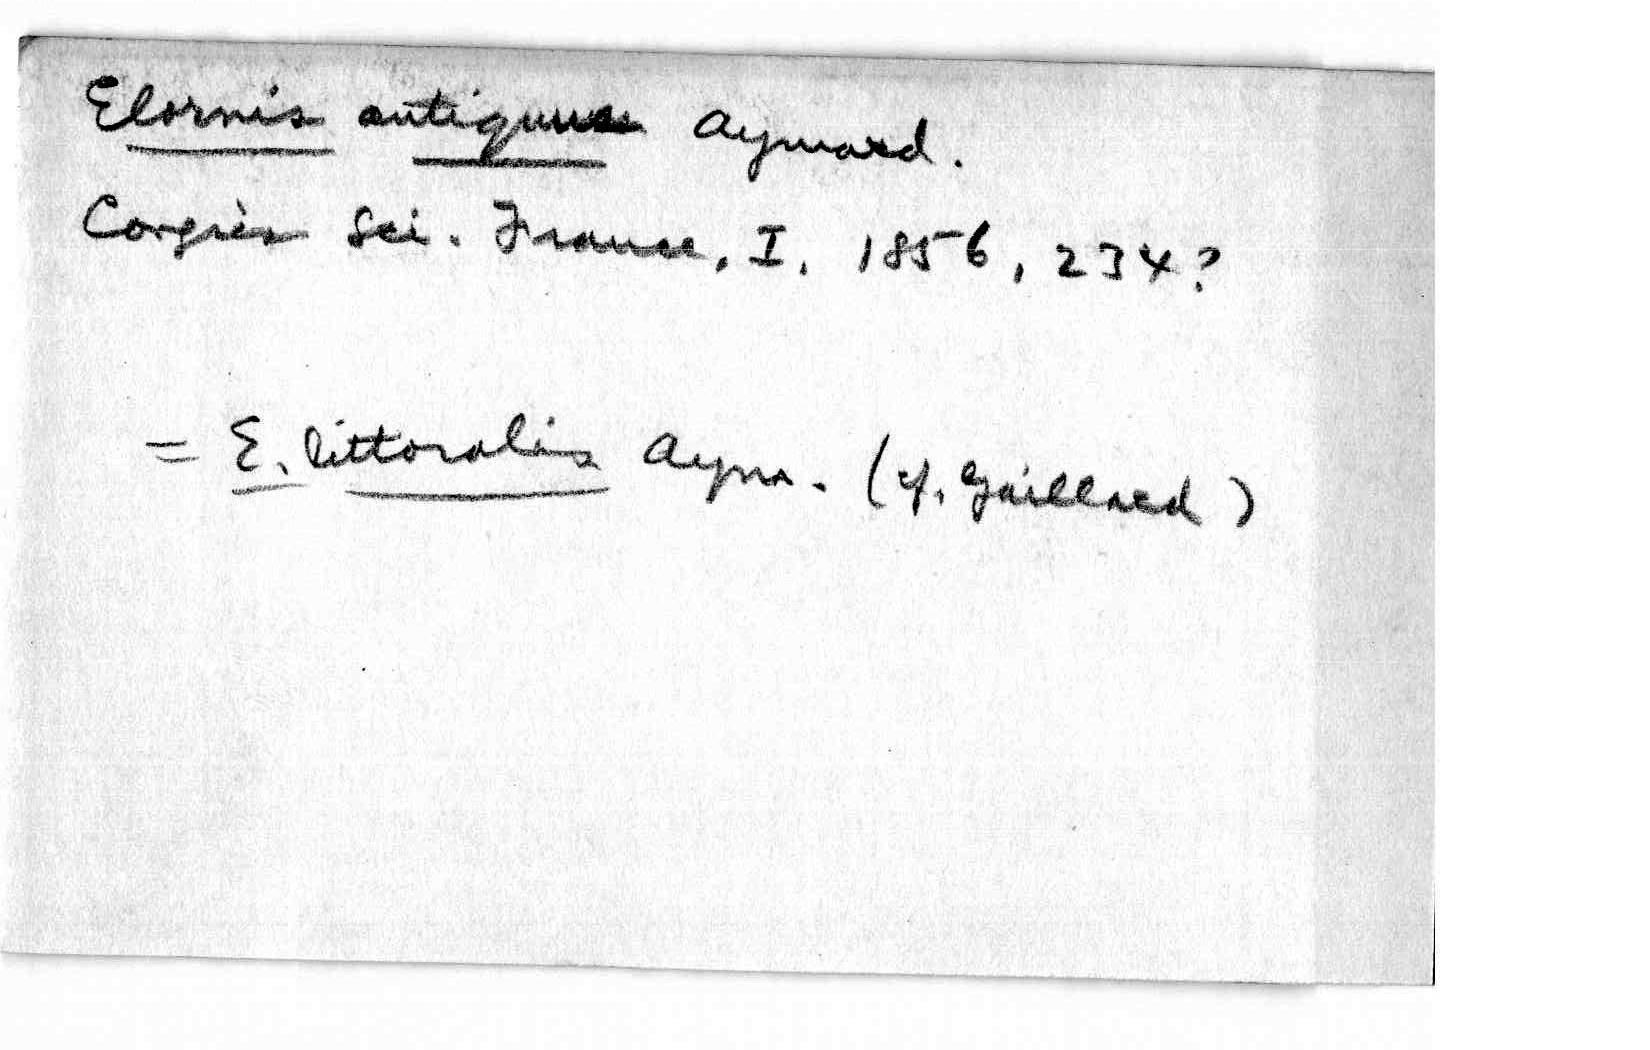 Elornis antiquus Aymard.
Congrès Sci. France, I, 1856, 234?
= E. littoralis Aym. (cf. Gaillard)